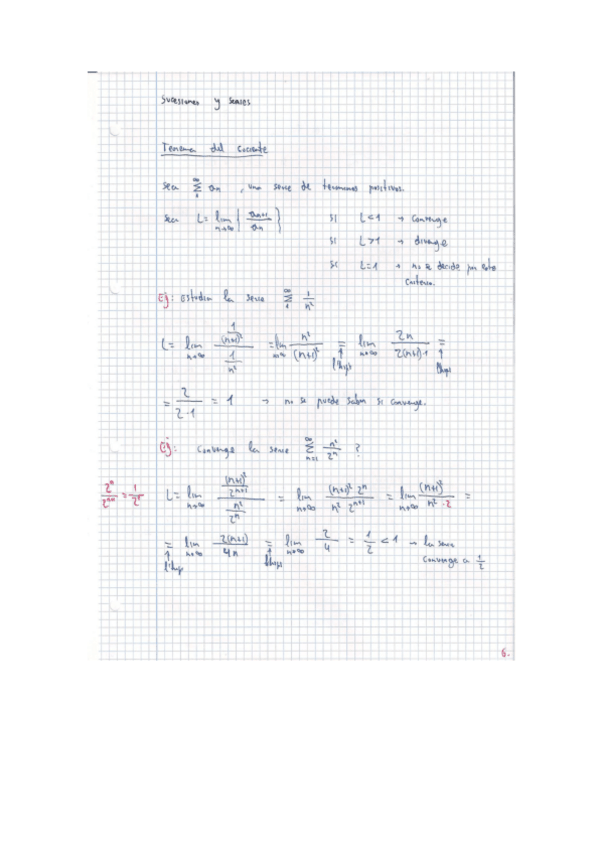 Sucesiones y series
Teorema del cociente
sea ∑_1^∞ an, una serie de términos positivos.
sea L = lim_{n→∞} { an+1 / an } si L<1 → converge
si L>1 → diverge
si L=1 → no se decide por este
criterio.
Ej: Estudiar la serie ∑_1^∞ 1/n²
L = lim_{n→∞} (1/(n+1)²)/(1/n²) = lim_{n→∞} n²/(n+1)² = lim_{n→∞} 2n/(2(n+1)·1) =
l'hop l'hop
= 2/(2·1) = 1 → no se puede saber si converge.
Ej: Converge la serie ∑_{n=1}^∞ n²/2ⁿ ?
L = lim_{n→∞} ((n+1)²/2ⁿ⁺¹)/(n²/2ⁿ) = lim_{n→∞} (n+1)² 2ⁿ/(n² 2ⁿ⁺¹) = lim_{n→∞} (n+1)²/(n²·2) =
= lim_{n→∞} 2(n+1)/4n = lim_{n→∞} 2/4 = 1/2 < 1 → la serie
l'hop l'hop converge a 1/2
6.